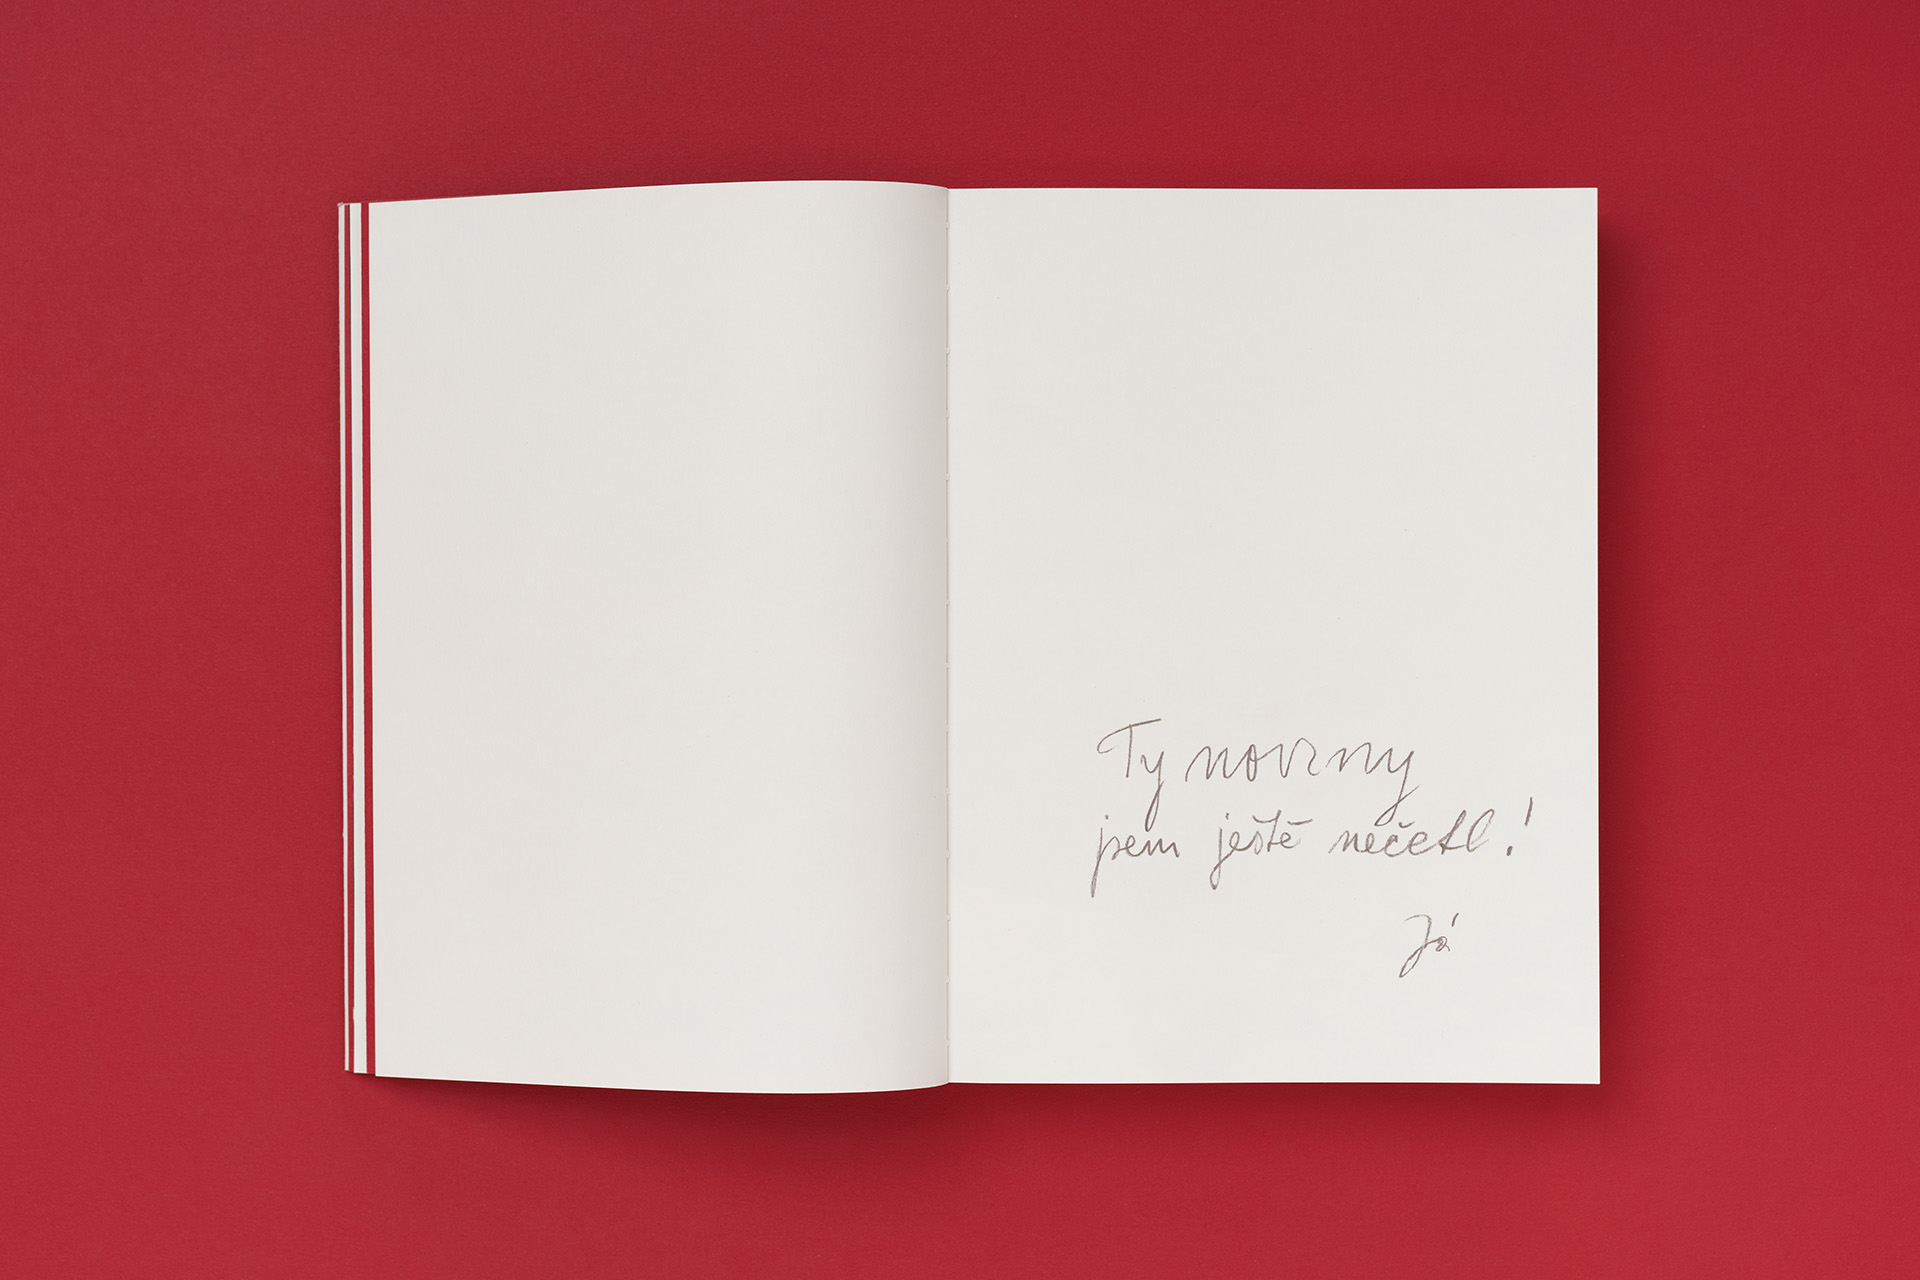 Ty noviny
jsem ještě nečetl!
Já